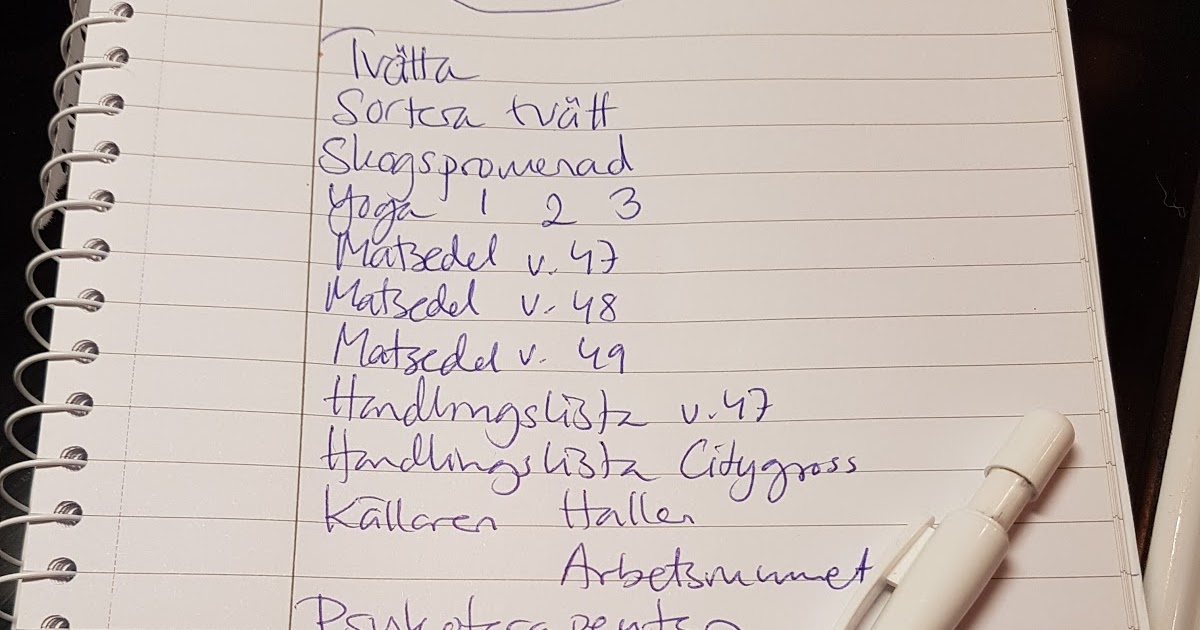 Tvätta
Sortera tvätt
Skogspromenad
Yoga 1 2 3
Matsedel v. 47
Matsedel v. 48
Matsedel v. 49
Handlingslista v.47
Handlingslista Citygross
Källaren Hallen
Arbetsrummet